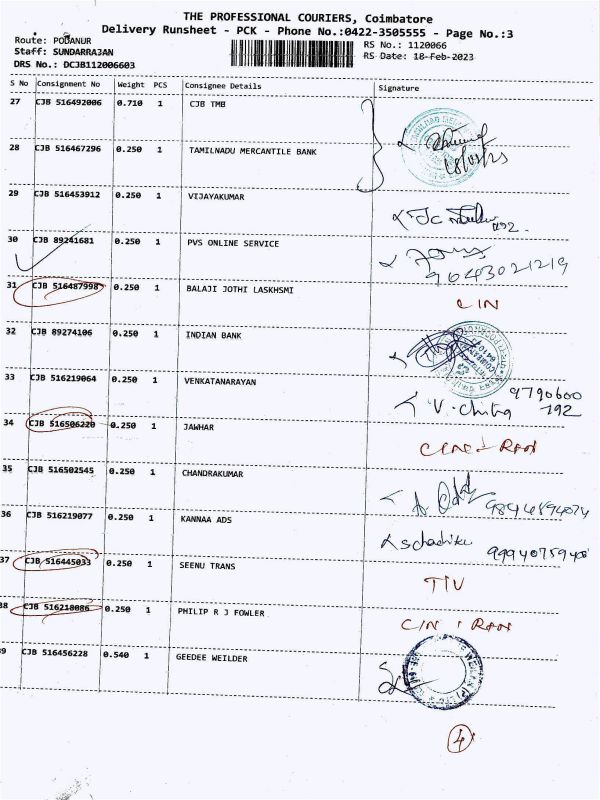 THE PROFESSIONAL COURIERS, Coimbatore
Delivery Runsheet - PCK - Phone No.:0422-3505555 - Page No.:3
Route: PODANUR
RS No.: 1120066
Staff: SUNDARRAJAN
RS Date: 18-Feb-2023
DRS No.: DCJB112006603
S No Consignment No Weight PCS Consignee Details Signature
27 CJB 516492006 0.710 1 CJB TMB
28 CJB 516467296 0.250 1 TAMILNADU MERCANTILE BANK
29 CJB 516453912 0.250 1 VIJAYAKUMAR
30 CJB 89241681 0.250 1 PVS ONLINE SERVICE
96043021219
31 CJB 516487998 0.250 1 BALAJI JOTHI LASKHSMI
CIN
32 CJB 89274106 0.250 1 INDIAN BANK
33 CJB 516219064 0.250 1 VENKATANARAYAN
V. Chitra 9790600
792
34 CJB 516506220 0.250 1 JAWHAR
35 CJB 516502545 0.250 1 CHANDRAKUMAR
36 CJB 516219077 0.250 1 KANNAA ADS
37 CJB 516445033 0.250 1 SEENU TRANS
TIV
38 CJB 516218086 0.250 1 PHILIP R J FOWLER
39 CJB 516456228 0.540 1 GEEDEE WEILDER
4